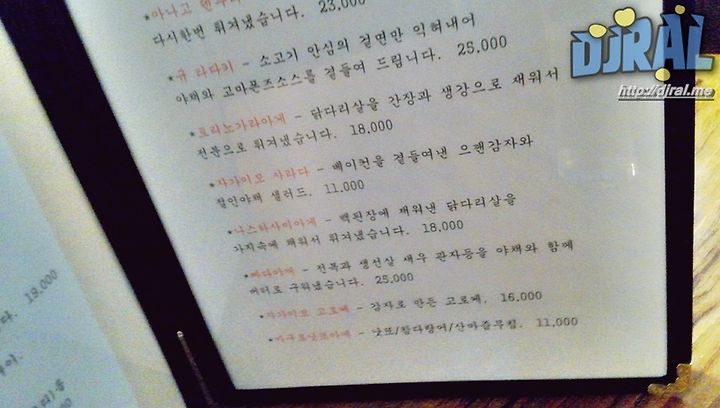 *아나고
다시한번 튀겨냈습니다. 23.000
*규 타다키 - 소고기 안심의 겉면만 익혀내어
야채와 고마폰즈소스를 곁들여 드립니다. 25.000
*토리노가라아게 - 닭다리살을 간장과 생강으로 재워서
전분으로 튀겨냈습니다. 18.000
*자가이모 사라다 - 베이컨을 곁들여낸 으깬감자와
절인야채 샐러드. 11.000
*나스타사이아게 - 백된장에 재워낸 닭다리살을
가지속에 채워서 튀겨냈습니다. 18.000
- 전복과 생선살 새우 관자등을 야채와 함께
버터로 구워냈습니다. 25.000
*자가이모 고로케 - 감자로 만든 고로케. 16.000
- 낫또/참다랑어/산마즙무침. 11,000
다. 19.000
DJRAL
http://djral.me